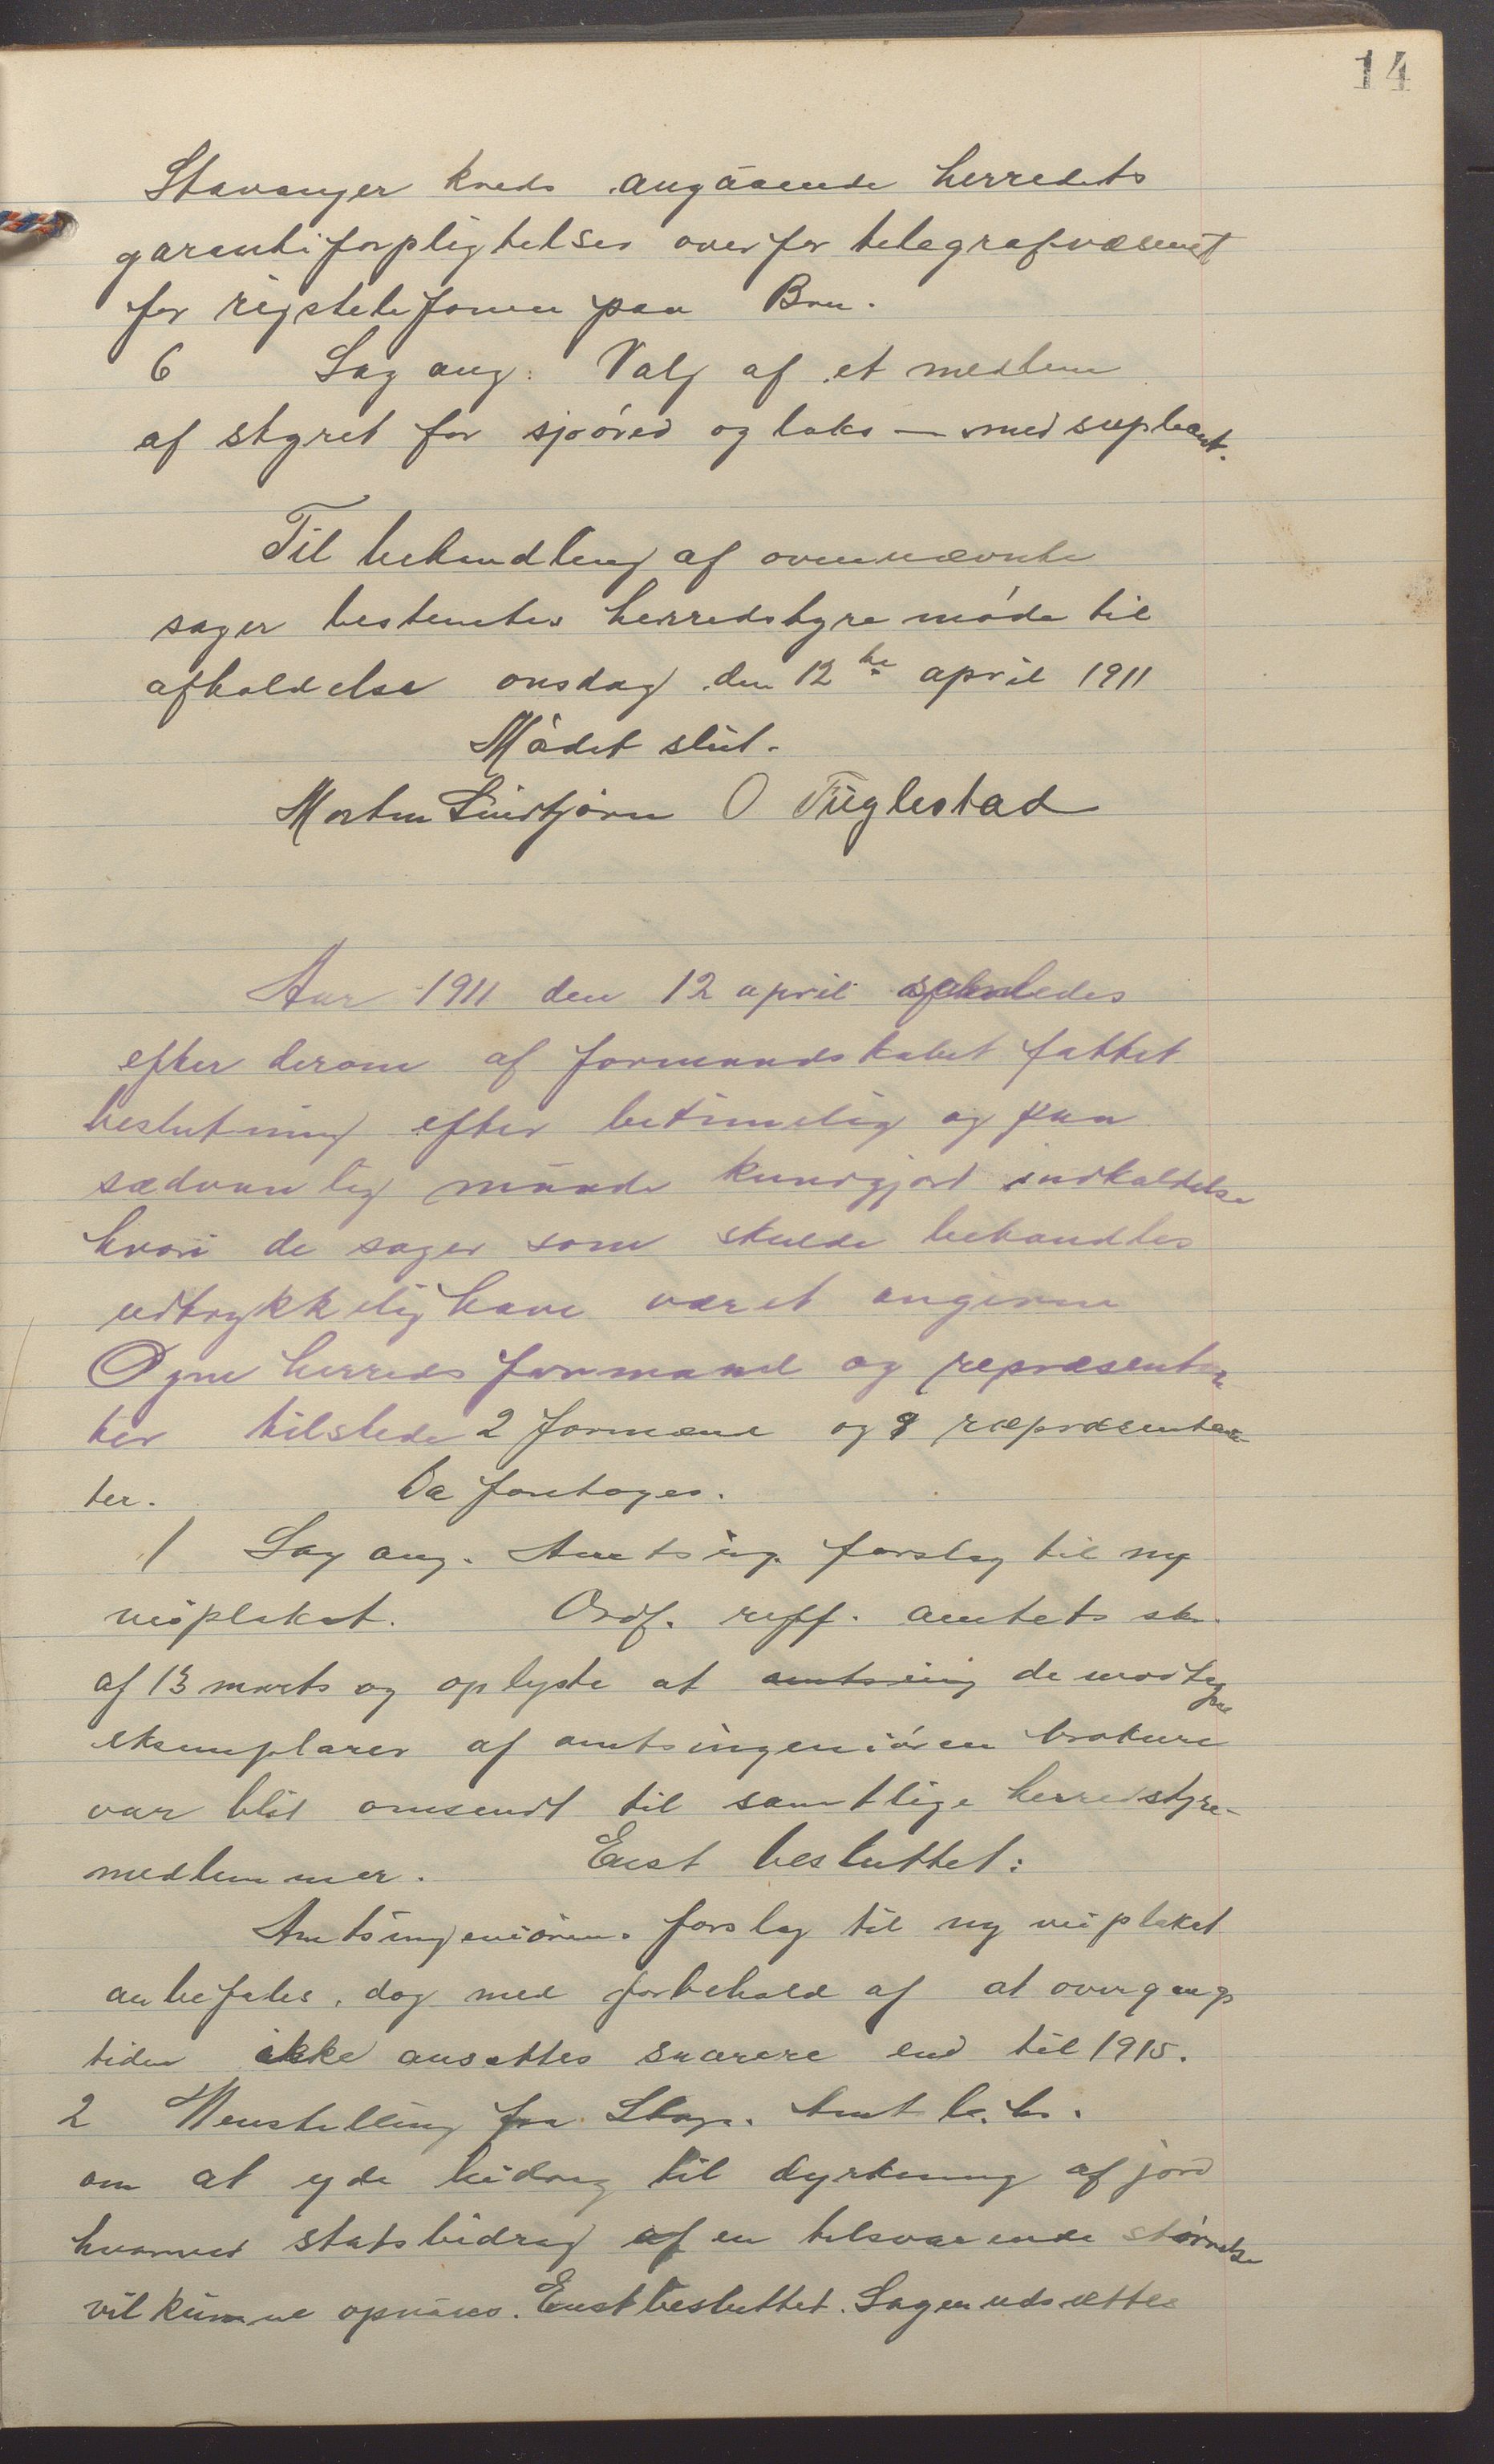 14
Stavanger kreds angaaende herredets
garantiforpligtelser overfor telegrafvæsenet
for rigstelefonen paa Bru.
6 Sag ang. Valg af et medlem
af styret for sjøøred og laks — med supleant.
Til behandling af ovennævnte
sager bestemtes herredstyremøde til
afholdelse onsdag den 12te april 1911
Mødet slut.
Morten Lindtjørn O Fuglestad
Aar 1911 den 12 april afholdes
efter derom af formandskabet fattet
beslutning efter betimelig og paa
sædvanlig maade kundgjort indkaldelse
hvori de sager som skulde behandles
udtrykkelig have været angivne
Ogne herreds formand og repræsentan
ter tilstede 2 formænd og 8 repræsentan-
ter. Da foretoges.
1 Sag ang. Amtsing. forslag til ny
veiplakat. Ordf. reff. amtets sk.
af 13 marts og oplyste at amtsing de modtagne
eksemplarer af amtsingeniøren brokure
var blit omsendt til samtlige herredstyre-
medlemmer. Enst besluttet:
Amtsingeniørens forslag til ny veiplakat
anbefales, dog med forbehold af at overgangs
tiden ikke ansettes snarere end til 1915.
2 Henstilling fra Stav. Amt
om at yde bidrag til dyrkning af jord
hvorved statsbidrag af en tilsvarende størrelse
vil kunne opnaaes. Enst besluttet. Sagen udsættes